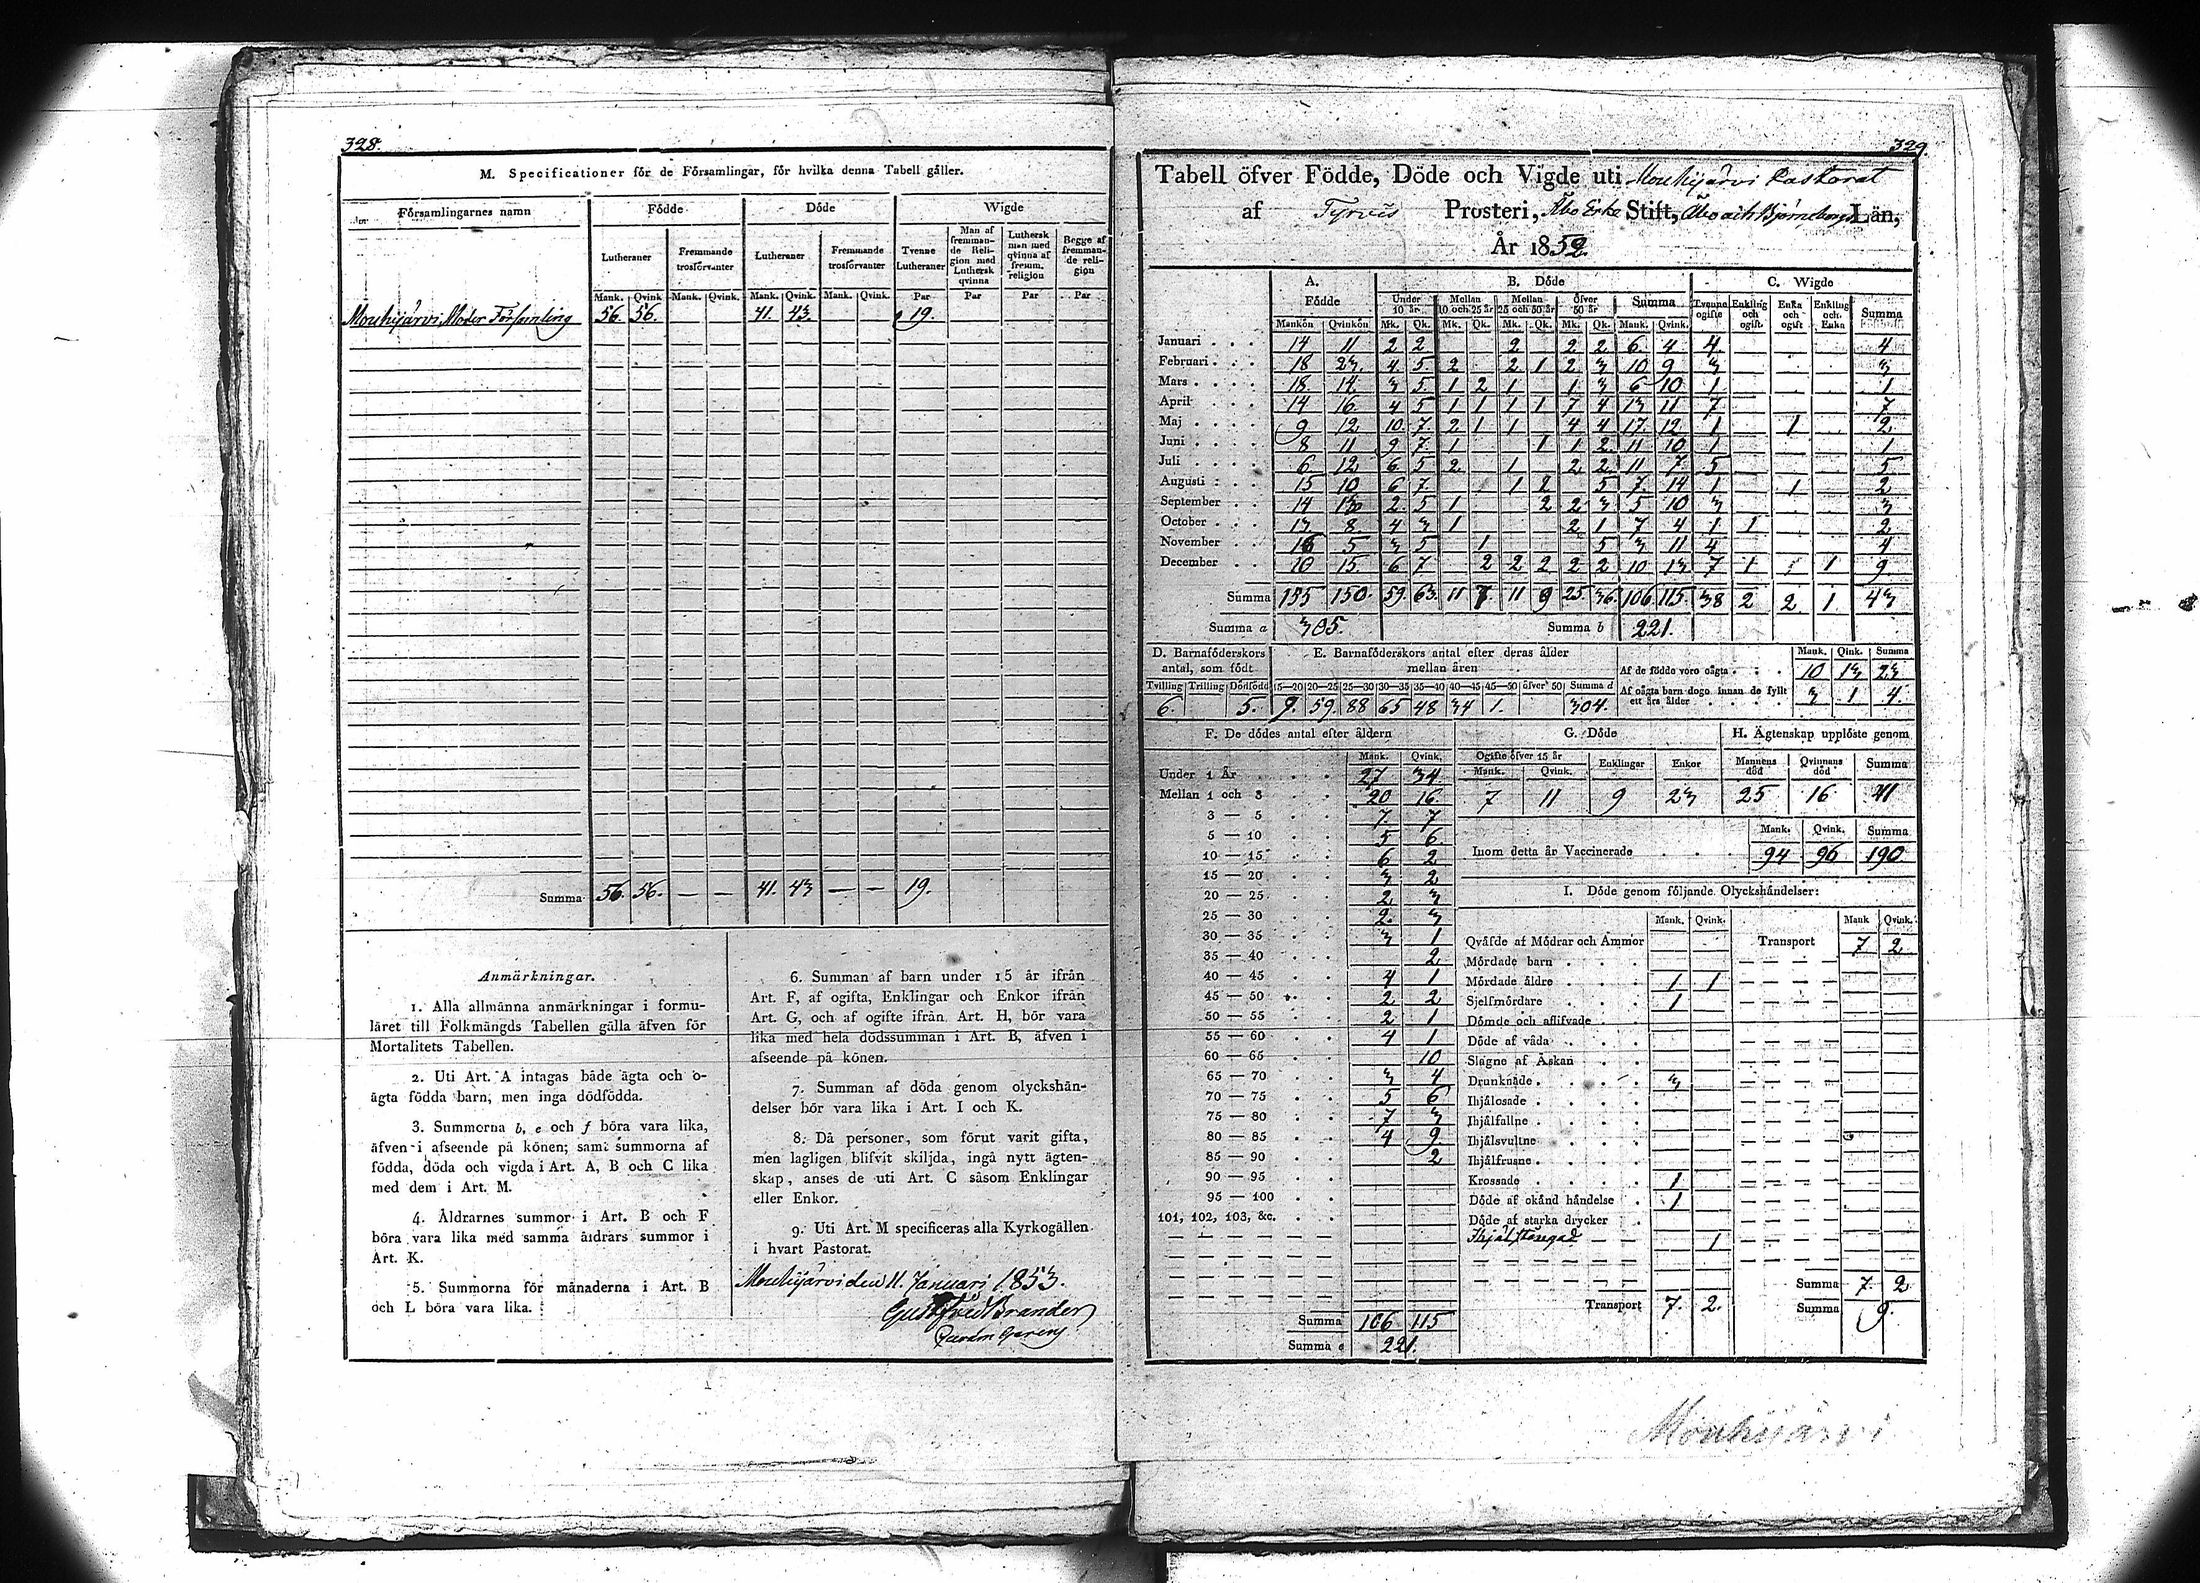 328.
M. Specificationer för de Församlingar, för hvilka denna Tabell gäller.
Församlingarnes namn | Födde | Döde | Wigde
Lutheraner | Fremmande trosförvanter | Lutheraner | Fremmande trosförvanter | Tvenne Lutheraner | Man af fremmande Religion med Luthersk qvinna | Luthersk man med qvinna af fremm. religion | Begge af fremmande religion
Mank. | Qvink | Mank. | Qvink. | Mank. | Qvink. | Mank. | Qvink. | Par | Par | Par | Par
Mouhijärvi Moder Församling 56. 56. 41. 43. 19.
Summa 56. 56. — — 41. 43 — — 19.
Anmärkningar.
1. Alla allmänna anmärkningar i formu-
läret till Folkmängds Tabellen gälla äfven för
Mortalitets Tabellen.
2. Uti Art. A intagas både ägta och o-
ägta födda barn, men inga dödfödda.
3. Summorna b, e och f böra vara lika,
äfven i afseende på könen; samt summorna af
födda, döda och vigda i Art. A, B och C lika
med dem i Art. M.
4. Åldrarnes summor i Art. B och F
böra vara lika med samma åldrars summor i
Art. K.
5. Summorna för månaderna i Art. B
och L böra vara lika.
6. Summan af barn under 15 år ifrån
Art. F, af ogifta, Enklingar och Enkor ifrån
Art. G, och af ogifte ifrån Art. H, bör vara
lika med hela dödssumman i Art. B, äfven i
afseende på könen.
7. Summan af döda genom olyckshän-
delser bör vara lika i Art. I och K.
8. Då personer, som förut varit gifta,
men lagligen blifvit skiljda, ingå nytt ägten-
skap, anses de uti Art. C såsom Enklingar
eller Enkor.
9. Uti Art. M specificeras alla Kyrkogällen
i hvart Pastorat.
Mouhijärvi den 11. Januari 1853.
Brander
329.
Tabell öfver Födde, Döde och Vigde uti Mouhijärvi Pastorat
af Tyrvis Prosteri, Åbo Erke Stift, Åbo och Björneborgs Län,
År 1852.
A. Födde | B. Döde | C. Wigde
Under 10 år | Mellan 10 och 25 år | Mellan 25 och 50 år | Öfver 50 år | Summa | Tvenne ogifte | Enkling och ogift | Enka och ogift | Enkling och Enka | Summa
Mankön | Qvinkön | Mk. | Qk. | Mk. | Qk. | Mk. | Qk. | Mk. | Qk. | Mank. | Qvink.
Januari 14 11 2 2 2 2 2 6. 4 4. 4
Februari 18 23. 4 5 2 2 1 2 3 10 9 3 3
Mars 18 14. 3 5. 1 2 1 1 3 6 10 1 1
April 14 16. 4 5 1 1 1 1 7 4 13 11 7 7
Maj 9 12 10. 7. 2 1 1 4 4 17 12 1 1 2
Juni 8 11 9 7. 1 1 1 2. 11 10 1 1
Juli 6 12 6 5 2 1 2 2 11 7. 5 5
Augusti 15 10 6 7 1 2 5 7 14 1 1 2
September 14 13 2 5 1 2 2 3 5 10 3 3
October 13 8 4 3 1 2 1 7 4 1 1 2
November 16 5 3 5 1 5 3 11 4 4
December 10 15. 6 7 2 2 2 2 2 10 13 7 1 1 9
Summa 155 150 59. 63. 11 7 11 9 25 36. 106 115 38 2 2 1 43
Summa a 305. Summa b 221.
D. Barnaföderskors antal, som födt | E. Barnaföderskors antal efter deras ålder mellan åren
Mank. | Qink. | Summa
Tvilling | Trilling | Dödfödd | 15—20 | 20—25 | 25—30 | 30—35 | 35—40 | 40—45 | 45—50 | öfver 50 | Summa d
6. 5. 9. 59. 88 65 48 34 1. 304.
Af de födde voro oägta 10 13 23
Af oägta barn dogo innan de fyllt ett års ålder 3 1 4.
F. De dödes antal efter åldern
Mank. Qvink.
Under 1 År 27 34
Mellan 1 och 3 20 16
3 — 5 7. 7
5 — 10 5 6
10 — 15 6 2
15 — 20 3 2
20 — 25 2 3
25 — 30 2. 3
30 — 35 3 1
35 — 40 2
40 — 45 4 1
45 — 50 2 2
50 — 55 2 1
55 — 60 4 1
60 — 65 10
65 — 70 3 4
70 — 75 5 6
75 — 80 7 3
80 — 85 4 9.
85 — 90 2
90 — 95
95 — 100
101, 102, 103, &c.
Summa 106 115
Summa e 221.
G. Döde | H. Ägtenskap upplöste genom
Ogifte öfver 15 år | Enklingar | Enkor | Mannens död | Qvinnans död | Summa
Mank. Qvink.
7 11 9 23 25 16 41
Mank. Qvink. Summa
Inom detta år Vaccinerade 94 96 190
I. Döde genom följande Olyckshändelser:
Mank. Qvink. Mank Qvink.
Qväfde af Mödrar och Ammor
Mördade barn
Mördade äldre 1 1
Sjelfmördare 1
Dömde och aflifvade
Döde af våda
Slagne af Åskan
Drunknade 3
Ihjälosade
Ihjälfallne
Ihjälsvultne
Ihjälfrusne
Krossade 1
Döde af okänd händelse 1
Döde af starka drycker
Ihjälstångad 1
Transport 7. 2.
Transport 7 2
Summa 7. 2
Summa 9.
Mouhijärvi